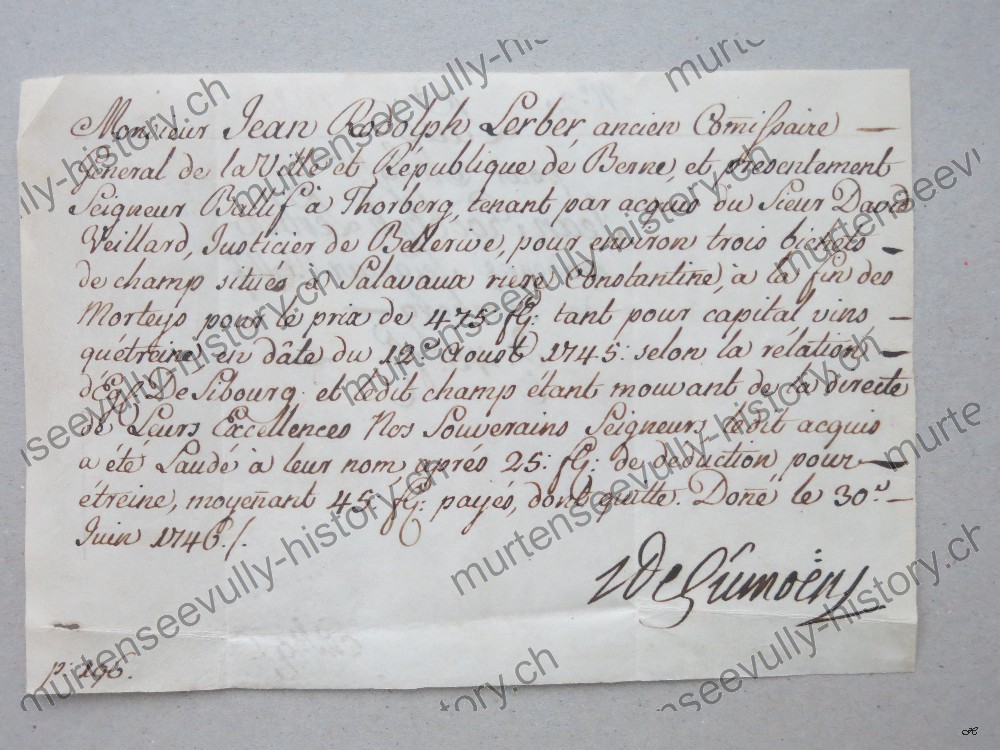 Monsieur Jean Rodolph Lerber ancien Comissaire —
general de la Ville et République de Berne, et presentement
Seigneur Ballif à Thorberg, tenant par acquis du Sieur David
Veillard, Justicier de Bellerive, pour environ trois bichets —
de champ situés à Salavaux riére Constantine, à la fin des
Morteys pour le prix de 475. fG: tant pour capital vins —
qu'étreine, en dâte du 12.e Aoust 1745: selon la rélation —
d'Eg: De Sibourg. et ledit champ étant mouvant de la directe
de Leurs Excellences Nos Souverains Seigneurs, acquis
a été Laudé à leur nom aprés 25: fG: de deduction pour —
étreine, moyenant 45. fG: payés, dont quitte. Doné le 30.e —
Juin 1746./.
De Gümoëns
p: 196.
murtenseevully-history.ch